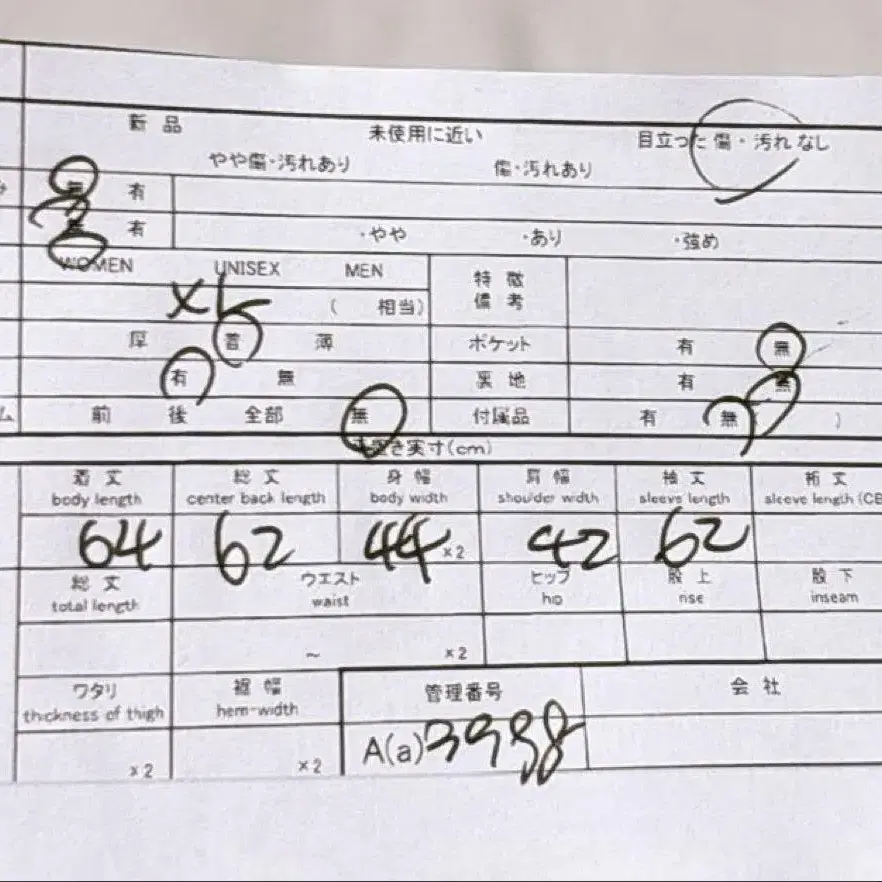 新品 未使用に近い 目立った傷・汚れなし
やや傷・汚れあり 傷・汚れあり
無 有
無 有 ・やや ・あり ・強め
WOMEN UNISEX MEN 特徴
備考
XL ( 相当)
厚 普 薄 ポケット 有 無
有 無 裏地 有 無
ム 前 後 全部 無 付属品 有 無 ( )
平置き実寸(cm)
着丈 総丈 身幅 肩幅 袖丈 裄丈
body length center back length body width shoulder width sleeve length sleeve length (CB
64 62 44 ×2 42 62
総丈 ウエスト ヒップ 股上 股下
total length waist hip rise inseam
~ ×2
ワタリ 裾幅 管理番号 会社
thickness of thigh hem-width
×2 ×2 A(a)3998